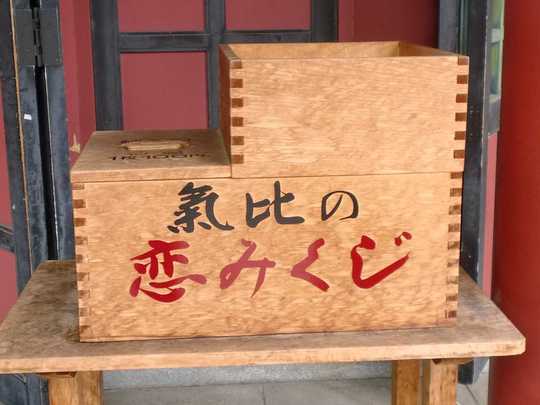 1枚100円
氣比の
恋みくじ